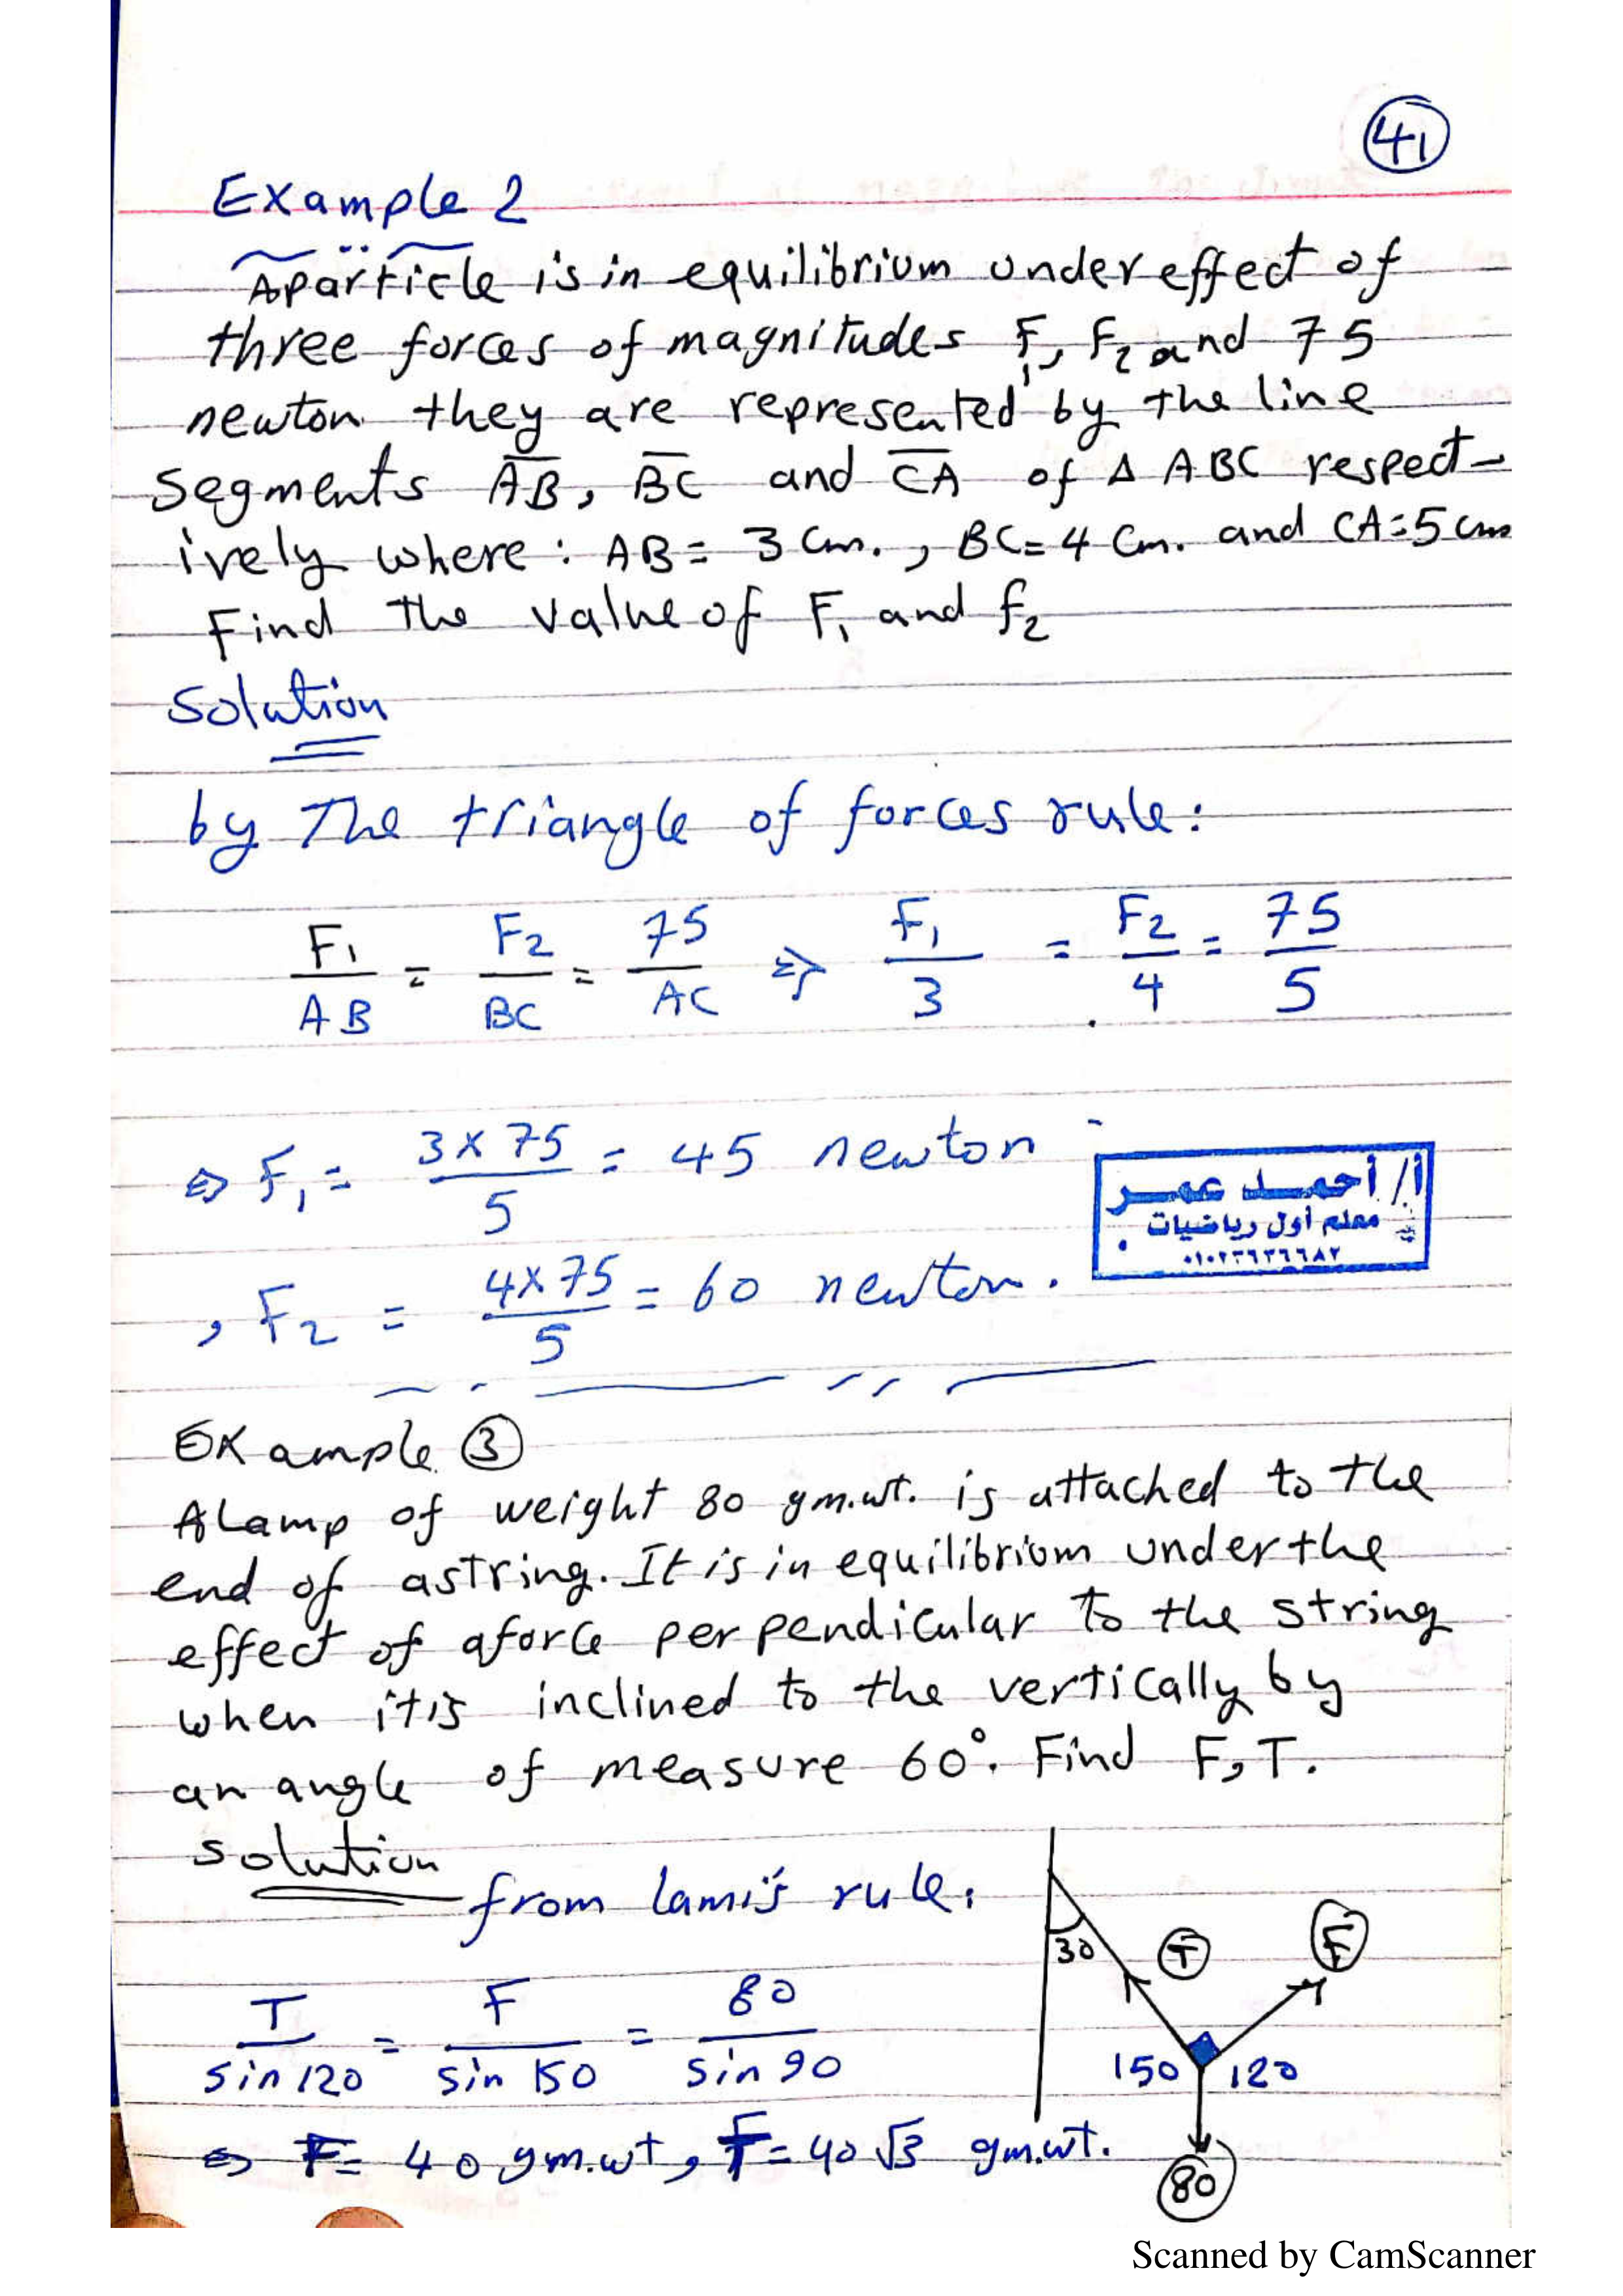 41
Example 2
Aparticle is in equilibrium under effect of
three forces of magnitudes F₁, F₂ and 75
newton they are represented by the line
segments A̅B̅, B̅C̅ and C̅A̅ of Δ ABC respect-
ively where: AB = 3 Cm., BC = 4 Cm. and CA = 5 cm
Find the value of F₁ and f₂
Solution
by The triangle of forces rule:
F₁/AB = F₂/BC = 75/AC ⇒ F₁/3 = F₂/4 = 75/5
⇒ F₁ = 3×75/5 = 45 newton
أ/ أحمد عمر
معلم أول رياضيات
, F₂ = 4×75/5 = 60 newton.
Example 3
A Lamp of weight 80 gm.wt. is attached to the
end of astring. It is in equilibrium under the
effect of aforce perpendicular to the string
when itis inclined to the vertically by
an angle of measure 60°. Find F, T.
Solution
from lami's rule:
T/sin 120 = F/sin 150 = 80/sin 90
30 T F
150 120
80
⇒ F = 40 gm.wt, T = 40√3 gm.wt.
Scanned by CamScanner